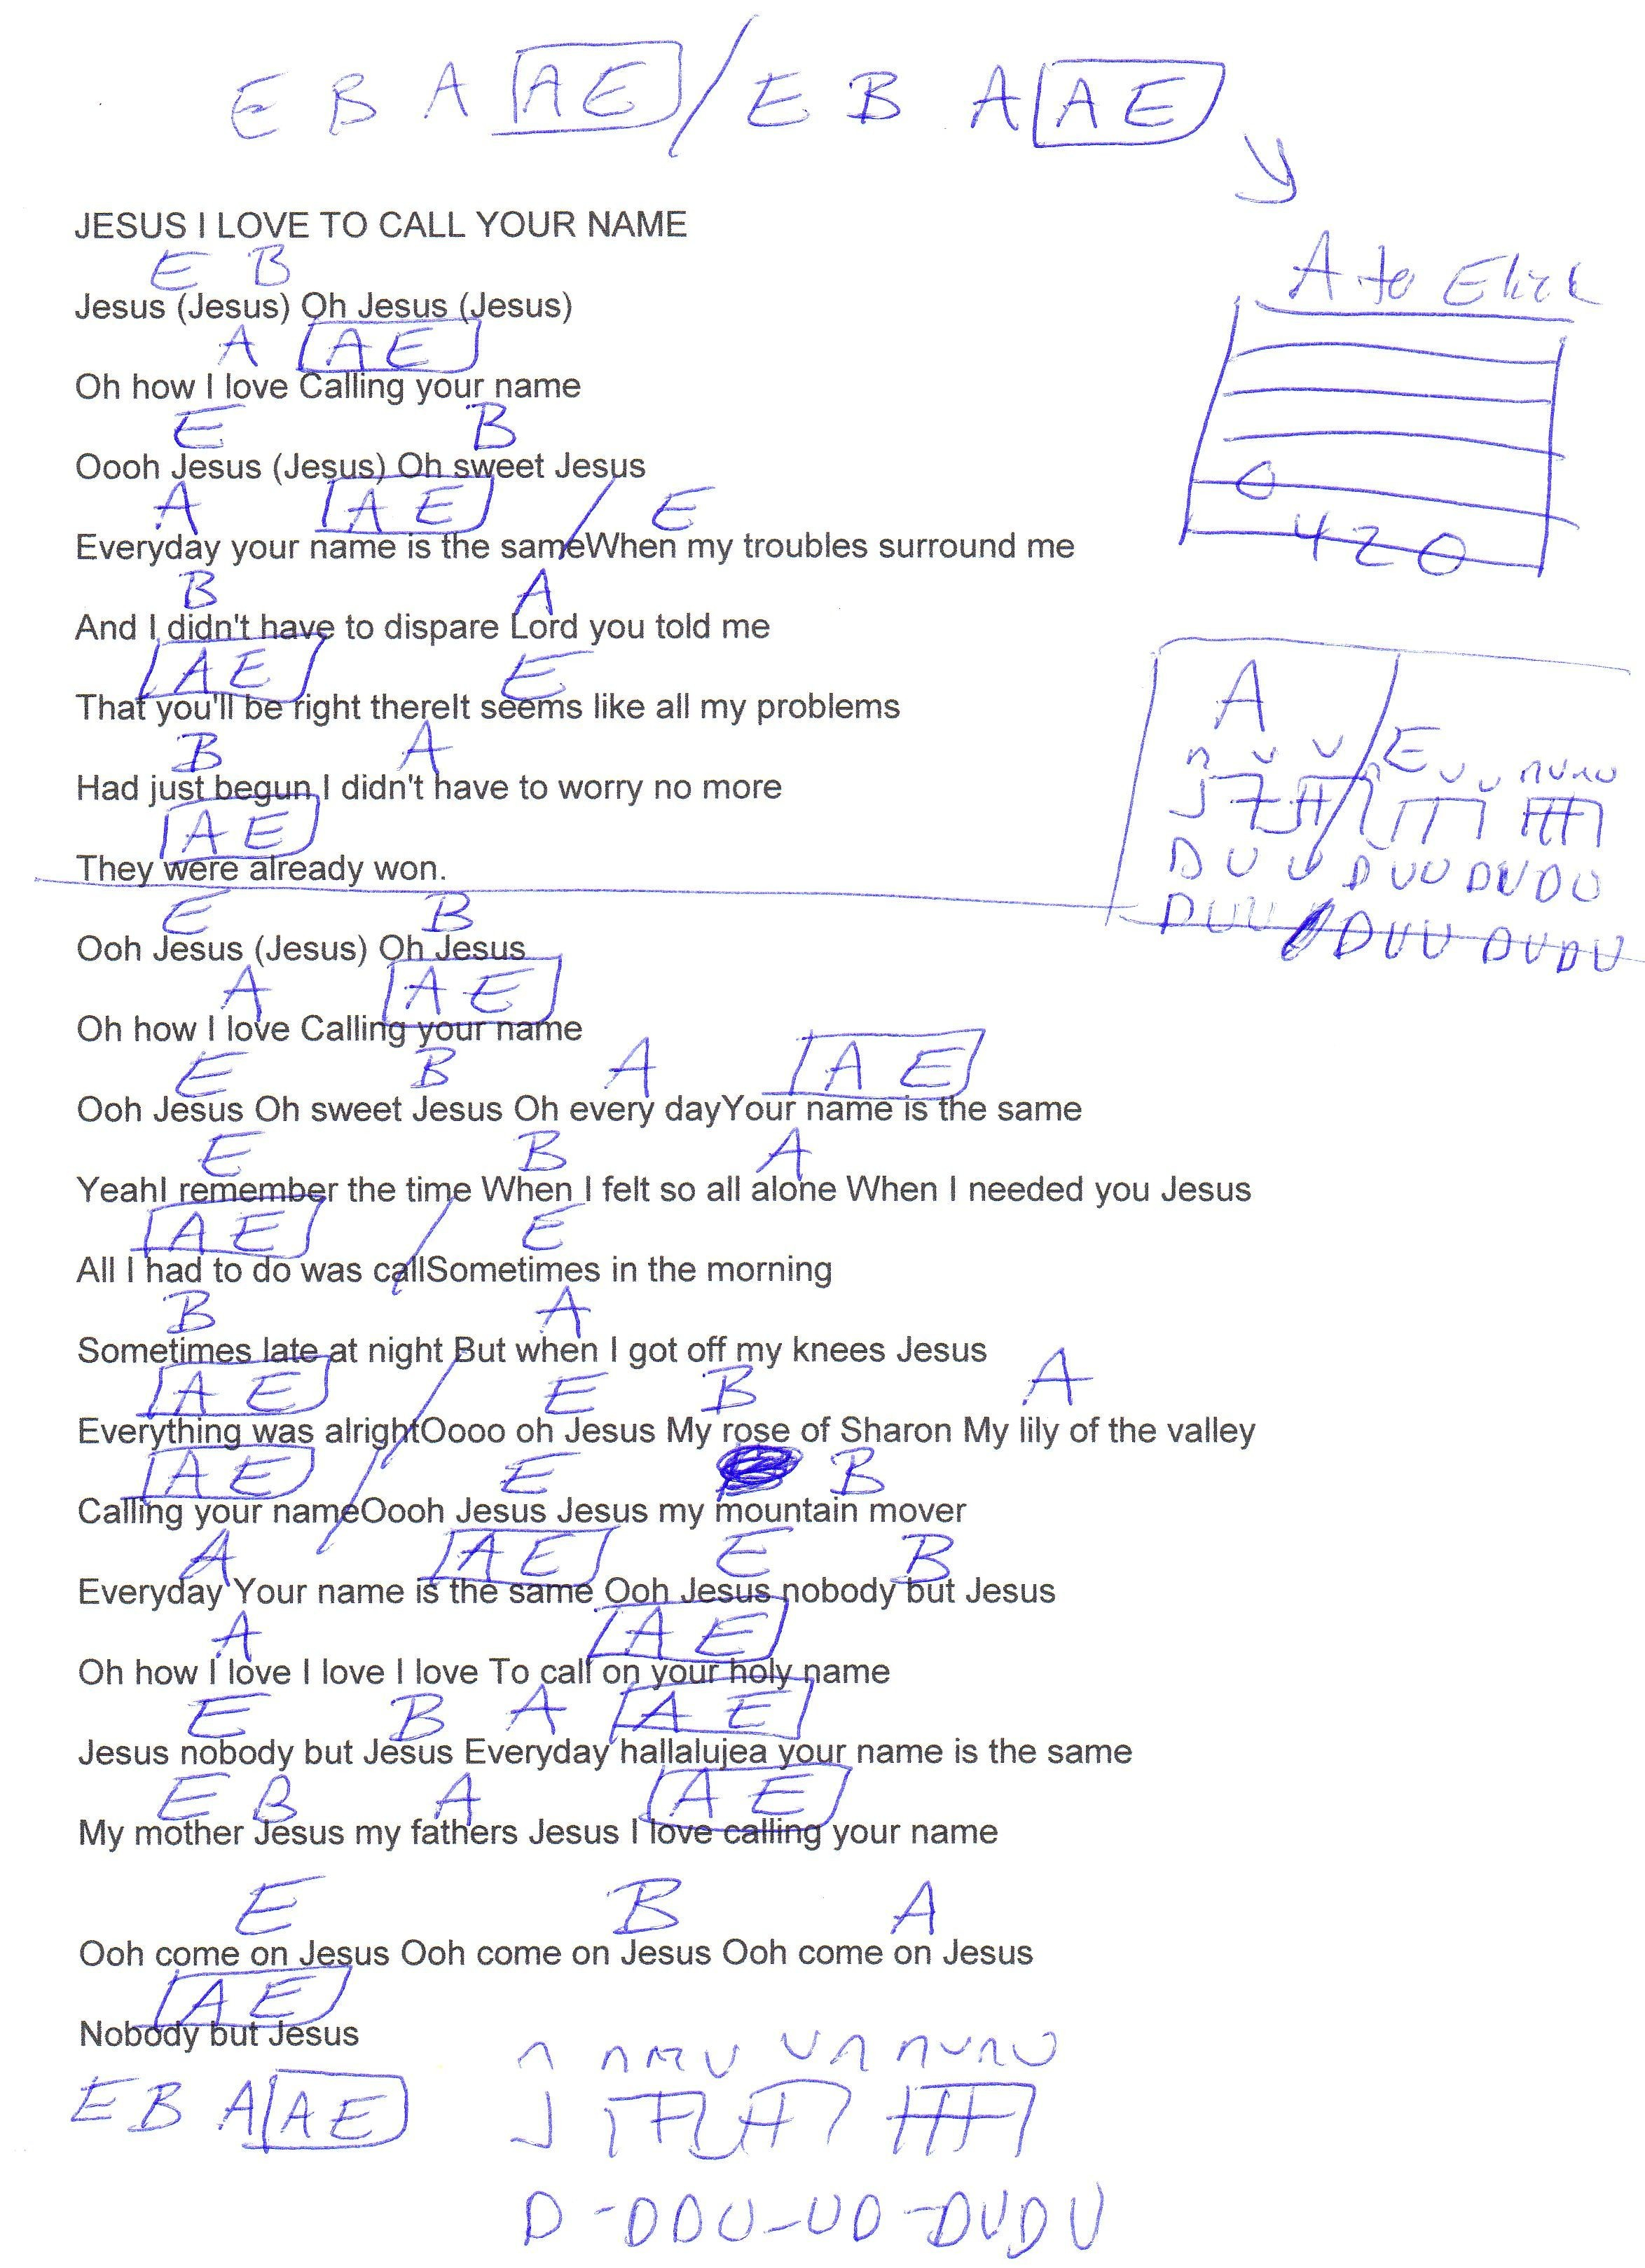 E B A A E / E B A A E
JESUS I LOVE TO CALL YOUR NAME
E B
Jesus (Jesus) Oh Jesus (Jesus)
A A E
Oh how I love Calling your name
E B
Oooh Jesus (Jesus) Oh sweet Jesus
A A E / E
Everyday your name is the sameWhen my troubles surround me
B A
And I didn't have to dispare Lord you told me
A E E
That you'll be right thereIt seems like all my problems
B A
Had just begun I didn't have to worry no more
A E
They were already won.
E B
Ooh Jesus (Jesus) Oh Jesus
A A E
Oh how I love Calling your name
E B A A E
Ooh Jesus Oh sweet Jesus Oh every dayYour name is the same
E B A
YeahI remember the time When I felt so all alone When I needed you Jesus
A E / E
All I had to do was callSometimes in the morning
B A
Sometimes late at night But when I got off my knees Jesus
A E / E B A
Everything was alrightOooo oh Jesus My rose of Sharon My lily of the valley
A E / E B
Calling your nameOooh Jesus Jesus my mountain mover
A A E E B
Everyday Your name is the same Ooh Jesus nobody but Jesus
A A E
Oh how I love I love I love To call on your holy name
E B A A E
Jesus nobody but Jesus Everyday hallalujea your name is the same
E B A A E
My mother Jesus my fathers Jesus I love calling your name
E B A
Ooh come on Jesus Ooh come on Jesus Ooh come on Jesus
A E
Nobody but Jesus
E B A A E
D - D D U - U D - D U D U
A to E
0
4 2 0
A / E
D U U D U U D U D U
D U U / D U U D U D U